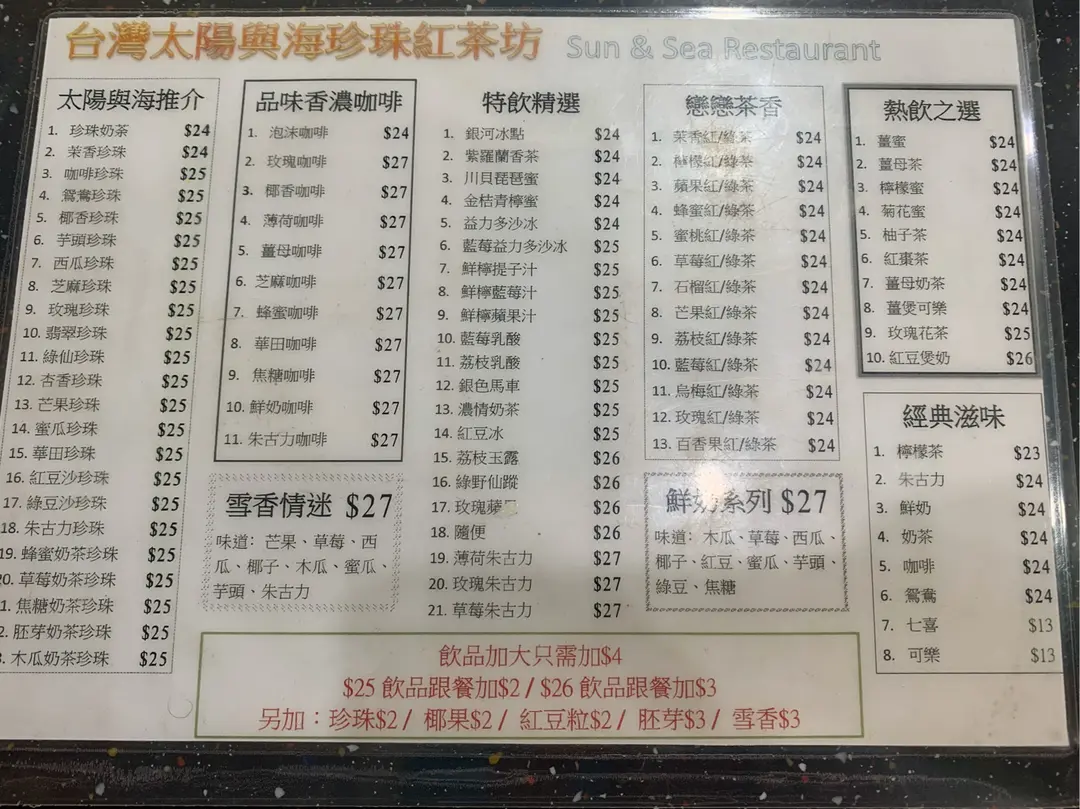 台灣太陽與海珍珠紅茶坊 Sun & Sea Restaurant
太陽與海推介
1. 珍珠奶茶 $24
2. 茉香珍珠 $24
3. 咖啡珍珠 $25
4. 鴛鴦珍珠 $25
5. 椰香珍珠 $25
6. 芋頭珍珠 $25
7. 西瓜珍珠 $25
8. 芝麻珍珠 $25
9. 玫瑰珍珠 $25
10. 翡翠珍珠 $25
11. 綠仙珍珠 $25
12. 杏香珍珠 $25
13. 芒果珍珠 $25
14. 蜜瓜珍珠 $25
15. 華田珍珠 $25
16. 紅豆沙珍珠 $25
17. 綠豆沙珍珠 $25
18. 朱古力珍珠 $25
19. 蜂蜜奶茶珍珠 $25
20. 草莓奶茶珍珠 $25
1. 焦糖奶茶珍珠 $25
2. 胚芽奶茶珍珠 $25
3. 木瓜奶茶珍珠 $25
品味香濃咖啡
1. 泡沫咖啡 $24
2. 玫瑰咖啡 $27
3. 椰香咖啡 $27
4. 薄荷咖啡 $27
5. 薑母咖啡 $27
6. 芝麻咖啡 $27
7. 蜂蜜咖啡 $27
8. 華田咖啡 $27
9. 焦糖咖啡 $27
10. 鮮奶咖啡 $27
11. 朱古力咖啡 $27
雪香情迷 $27
味道: 芒果、草莓、西
瓜、椰子、木瓜、蜜瓜、
芋頭、朱古力
特飲精選
1. 銀河冰點 $24
2. 紫羅蘭香茶 $24
3. 川貝琵琶蜜 $24
4. 金桔青檸蜜 $24
5. 益力多沙冰 $24
6. 藍莓益力多沙冰 $25
7. 鮮檸提子汁 $25
8. 鮮檸藍莓汁 $25
9. 鮮檸蘋果汁 $25
10. 藍莓乳酸 $25
11. 荔枝乳酸 $25
12. 銀色馬車 $25
13. 濃情奶茶 $25
14. 紅豆冰 $25
15. 荔枝玉露 $26
16. 綠野仙蹤 $26
17. 玫瑰蘋 $26
18. 隨便 $26
19. 薄荷朱古力 $27
20. 玫瑰朱古力 $27
21. 草莓朱古力 $27
戀戀茶香
1. 茉香紅/綠茶 $24
2. 檸檬紅/綠茶 $24
3. 蘋果紅/綠茶 $24
4. 蜂蜜紅/綠茶 $24
5. 蜜桃紅/綠茶 $24
6. 草莓紅/綠茶 $24
7. 石榴紅/綠茶 $24
8. 芒果紅/綠茶 $24
9. 荔枝紅/綠茶 $24
10. 藍莓紅/綠茶 $24
11. 烏梅紅/綠茶 $24
12. 玫瑰紅/綠茶 $24
13. 百香果紅/綠茶 $24
鮮奶系列 $27
味道: 木瓜、草莓、西瓜、
椰子、紅豆、蜜瓜、芋頭、
綠豆、焦糖
熱飲之選
1. 薑蜜 $24
2. 薑母茶 $24
3. 檸檬蜜 $24
4. 菊花蜜 $24
5. 柚子茶 $24
6. 紅棗茶 $24
7. 薑母奶茶 $24
8. 薑煲可樂 $24
9. 玫瑰花茶 $25
10. 紅豆煲奶 $26
經典滋味
1. 檸檬茶 $23
2. 朱古力 $24
3. 鮮奶 $24
4. 奶茶 $24
5. 咖啡 $24
6. 鴛鴦 $24
7. 七喜 $13
8. 可樂 $13
飲品加大只需加$4
$25 飲品跟餐加$2 / $26 飲品跟餐加$3
另加：珍珠$2 / 椰果$2 / 紅豆粒$2 / 胚芽$3 / 雪香$3